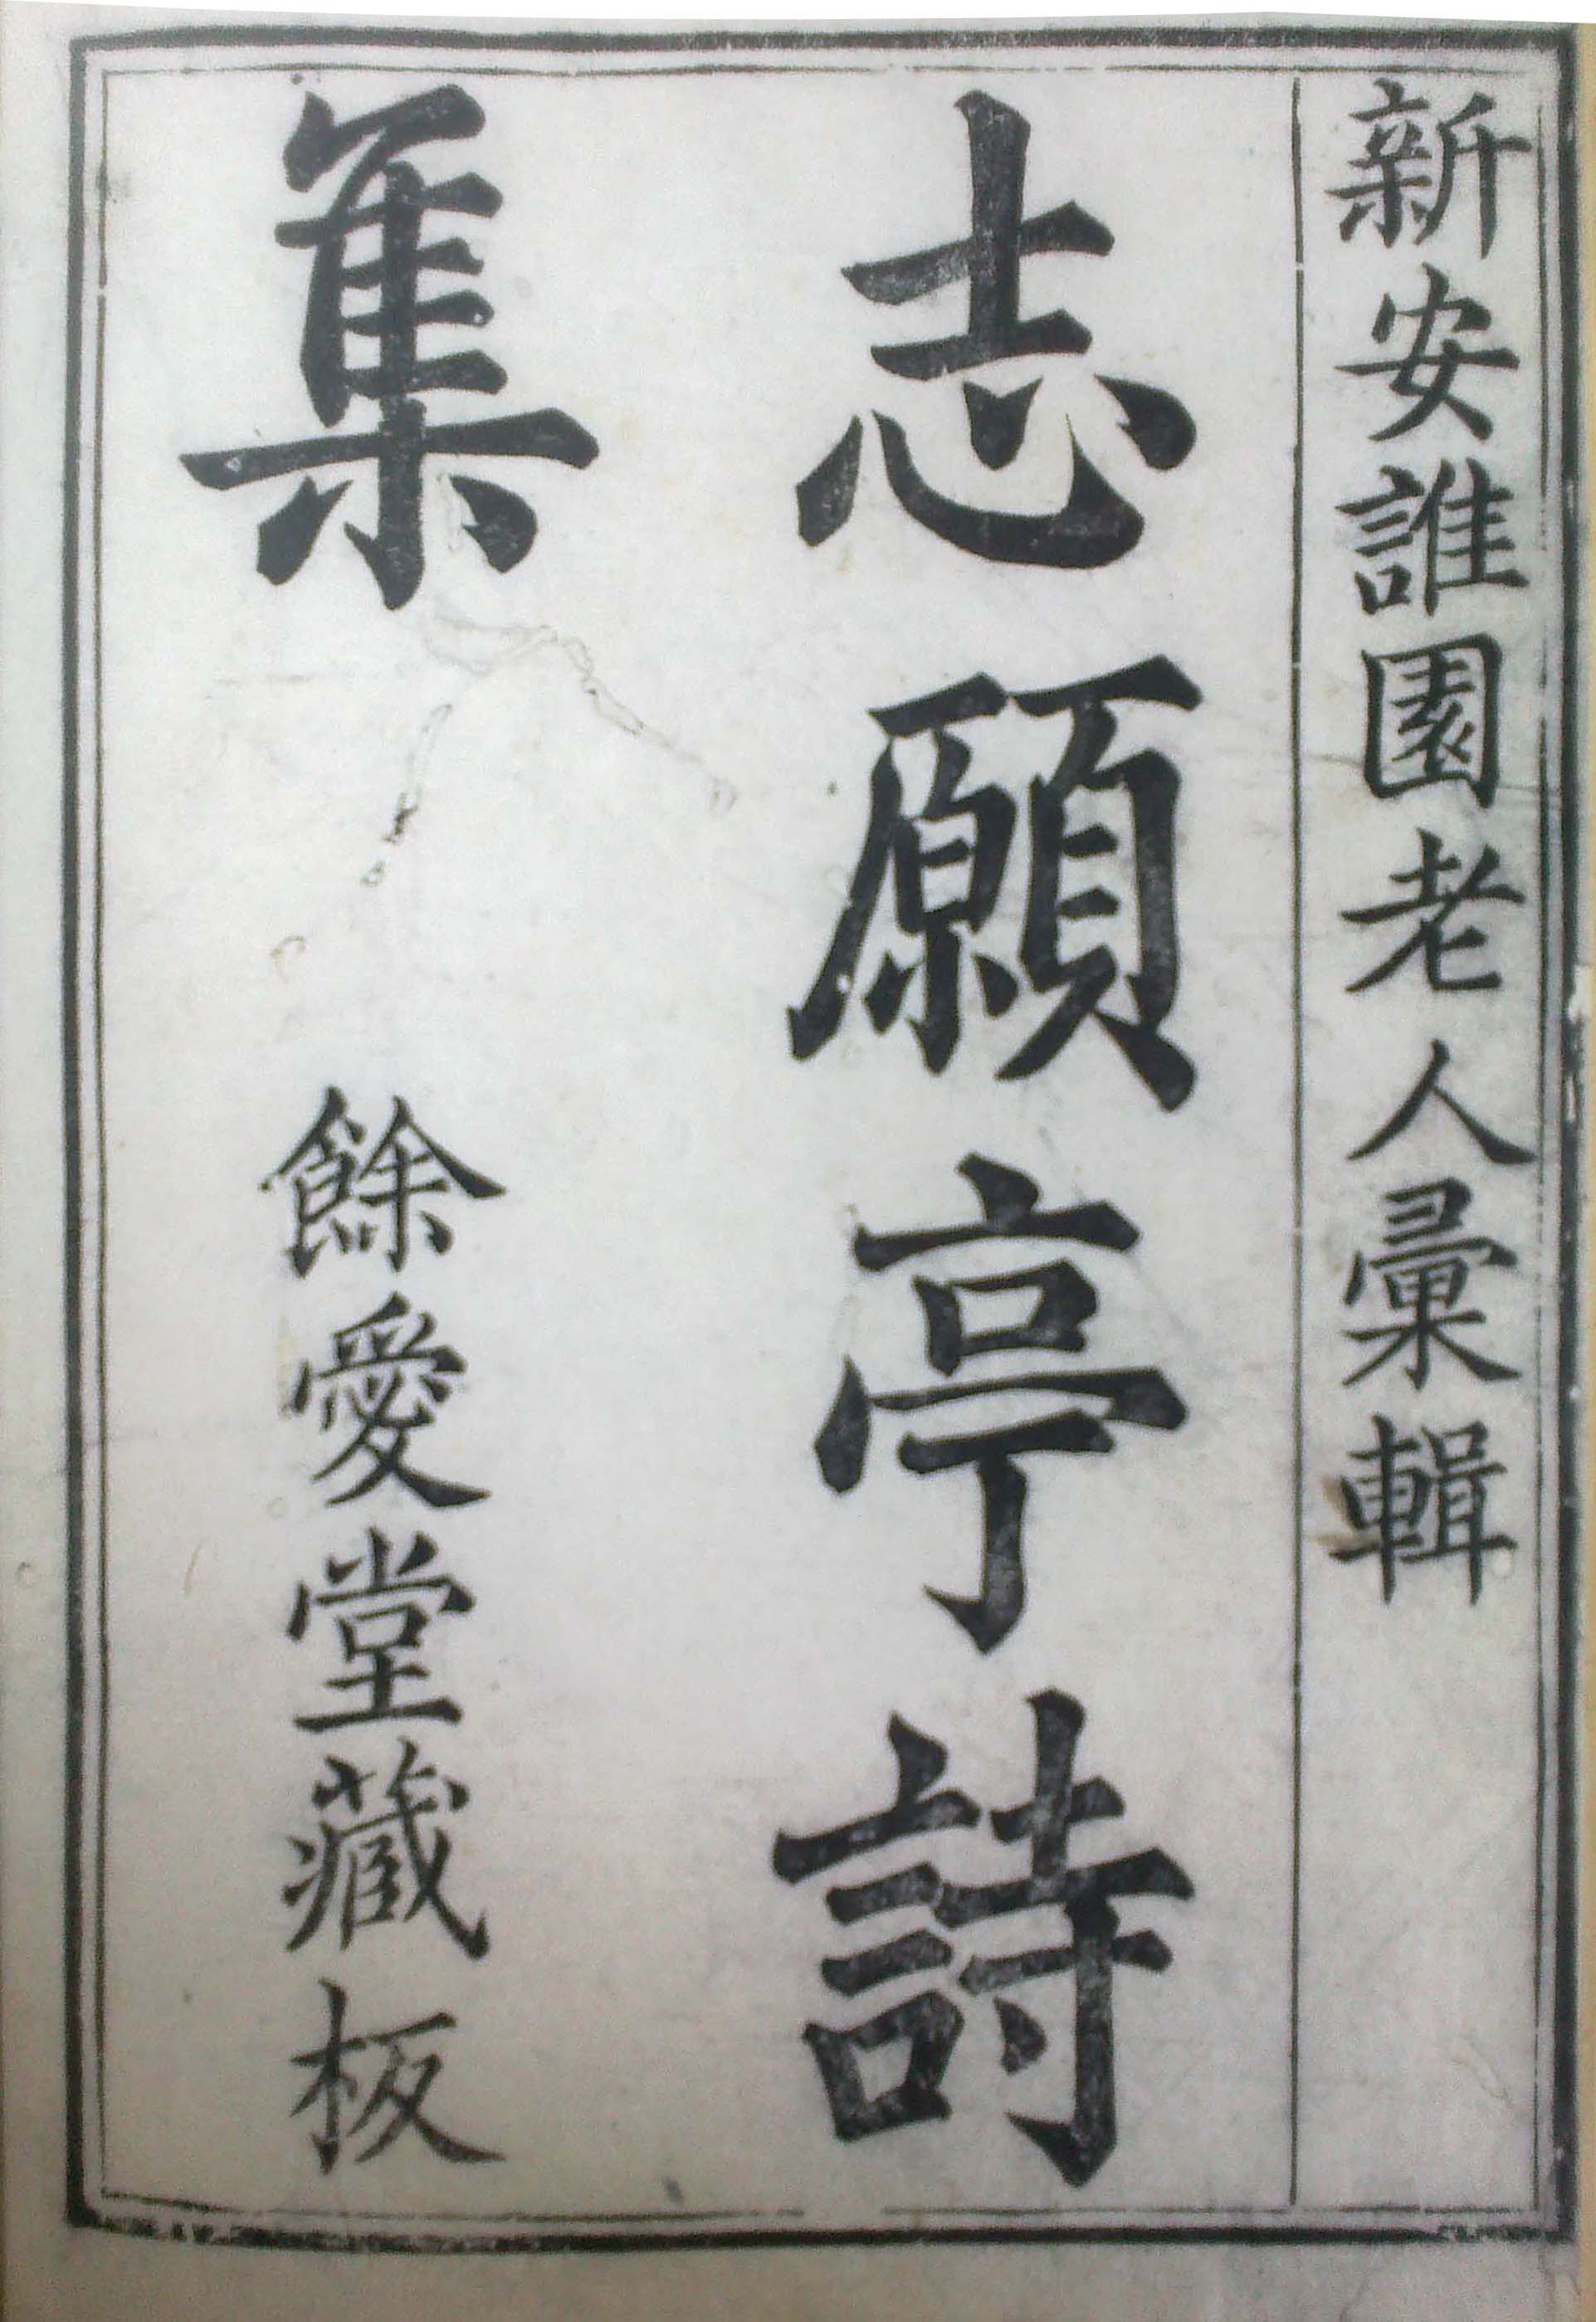 新安誰園老人彙輯
志願亭詩
集
餘愛堂藏板